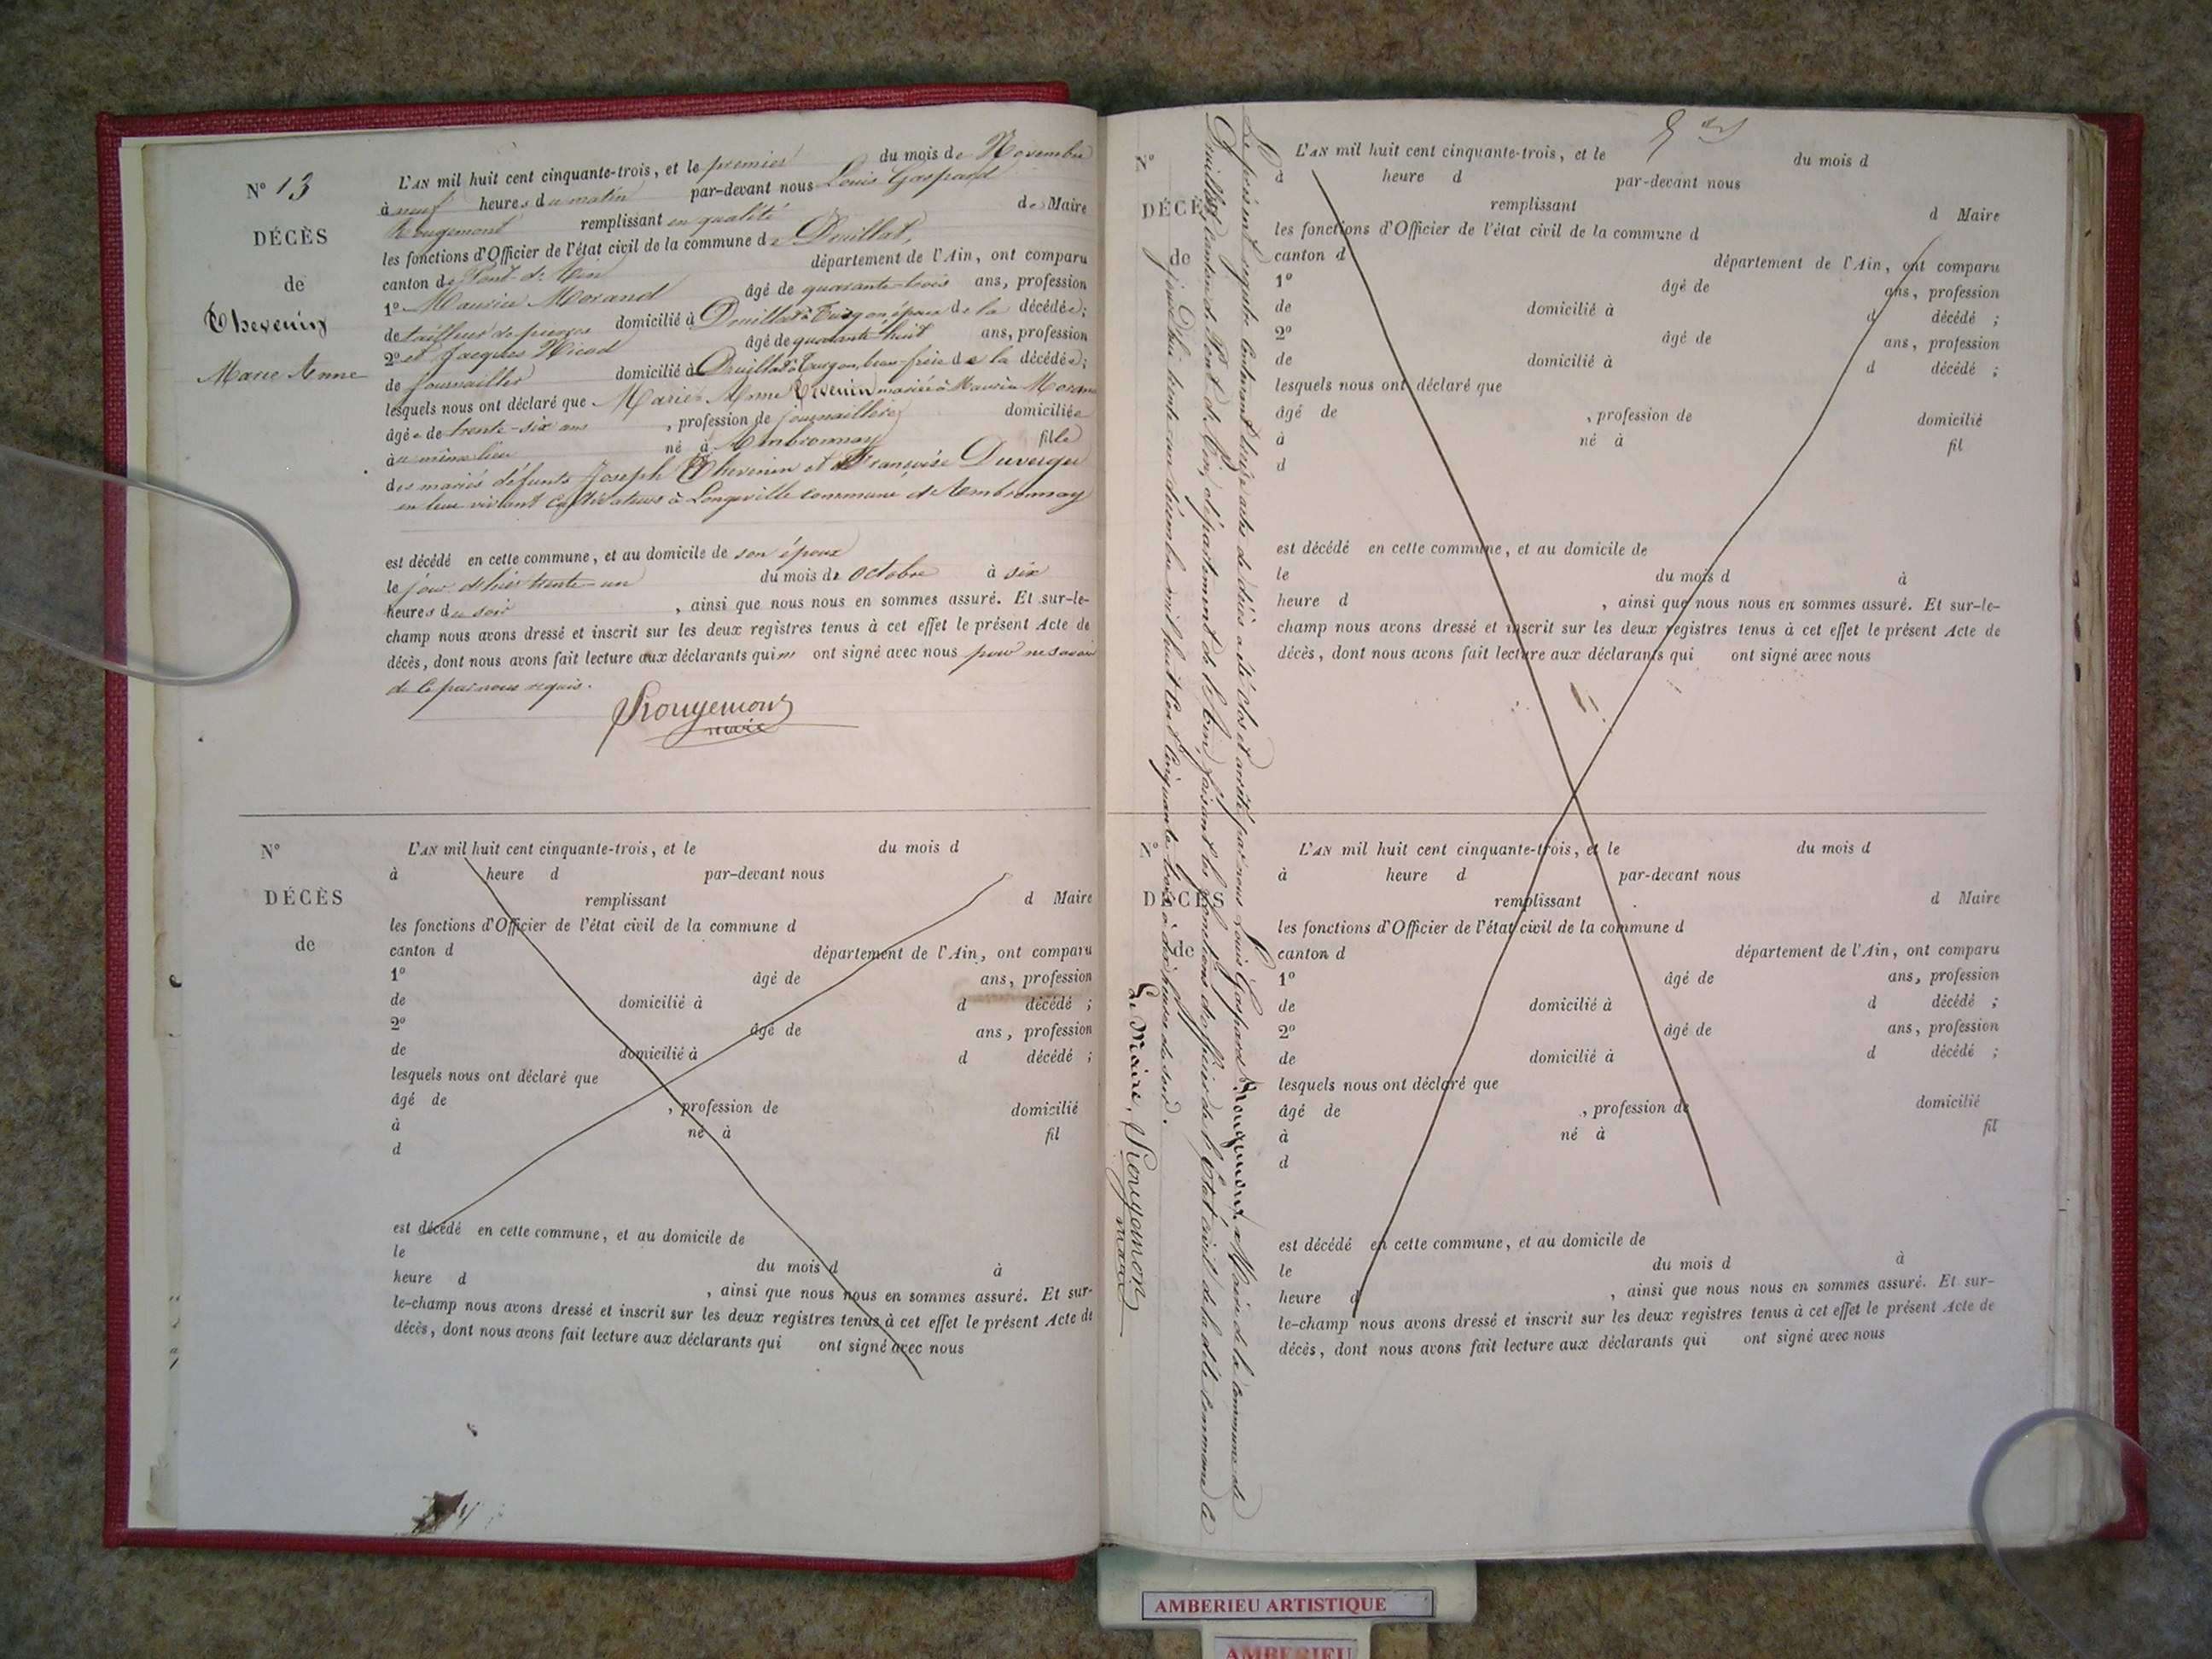 N° 13
DÉCÈS
de
Thevenin
Marie Anne
L'AN mil huit cent cinquante-trois, et le premier du mois de Novembre
à neuf heures du matin par-devant nous Louis Gaspard
Rougemont remplissant en qualité de Maire
les fonctions d'Officier de l'état civil de la commune de Druillat,
canton de Pont-d'Ain département de l'Ain, ont comparu
1° Maurice Morand âgé de quarante-trois ans, profession
de tailleur de pierres domicilié à Druillat à Turgon, époux de la décédée;
2° et Jacques Nicod âgé de quarante-huit ans, profession
de journalier domicilié à Druillat à Turgon, beau-frère de la décédée;
lesquels nous ont déclaré que Marie Anne Thevenin mariée à Maurice Morand
âgée de trente-six ans, profession de journalière domiciliée
au même lieu né à Ambronnay fille
des mariés défunts Joseph Thevenin et Françoise Duverger
en leur vivant cultivateurs à Longeville commune de Ambronnay
est décédé en cette commune, et au domicile de son époux
le jour d'hier trente-un du mois de Octobre à six
heures du soir, ainsi que nous nous en sommes assuré. Et sur-le-
champ nous avons dressé et inscrit sur les deux registres tenus à cet effet le présent Acte de
décès, dont nous avons fait lecture aux déclarants qui n' ont signé avec nous pour ne savoir
de ce par nous requis.
Rougemont
maire
N°
DÉCÈS
de
L'AN mil huit cent cinquante-trois, et le du mois d
à heure d par-devant nous
remplissant d Maire
les fonctions d'Officier de l'état civil de la commune d
canton d département de l'Ain, ont comparu
1° âgé de ans, profession
de domicilié à d décédé ;
2° âgé de ans, profession
de domicilié à d décédé ;
lesquels nous ont déclaré que
âgé de , profession de domicilié
à né à fil
d
est décédé en cette commune, et au domicile de
le du mois d à
heure d , ainsi que nous nous en sommes assuré. Et sur-
le-champ nous avons dressé et inscrit sur les deux registres tenus à cet effet le présent Acte de
décès, dont nous avons fait lecture aux déclarants qui ont signé avec nous
Le présent registre contenant treize actes de décès a été clos et arrêté par nous Louis Gaspard Rougemont, Maire de la commune de
Druillat, canton de Pont d'Ain, département de l'Ain, faisant les fonctions d'officier de l'Etat civil de la dite commune le
jourd'hui trente-un décembre mil huit cent cinquante-trois à dix heures du soir.
Le Maire, Rougemont
maire
N°
DÉCÈS
de
L'AN mil huit cent cinquante-trois, et le du mois d
à heure d par-devant nous
remplissant d Maire
les fonctions d'Officier de l'état civil de la commune d
canton d département de l'Ain, ont comparu
1° âgé de ans, profession
de domicilié à d décédé ;
2° âgé de ans, profession
de domicilié à d décédé ;
lesquels nous ont déclaré que
âgé de , profession de domicilié
à né à fil
d
est décédé en cette commune, et au domicile de
le du mois d à
heure d , ainsi que nous nous en sommes assuré. Et sur-le-
champ nous avons dressé et inscrit sur les deux registres tenus à cet effet le présent Acte de
décès, dont nous avons fait lecture aux déclarants qui ont signé avec nous
N°
DÉCÈS
de
L'AN mil huit cent cinquante-trois, et le du mois d
à heure d par-devant nous
remplissant d Maire
les fonctions d'Officier de l'état civil de la commune d
canton d département de l'Ain, ont comparu
1° âgé de ans, profession
de domicilié à d décédé ;
2° âgé de ans, profession
de domicilié à d décédé ;
lesquels nous ont déclaré que
âgé de , profession de domicilié
à né à fil
d
est décédé en cette commune, et au domicile de
le du mois d à
heure d , ainsi que nous nous en sommes assuré. Et sur-
le-champ nous avons dressé et inscrit sur les deux registres tenus à cet effet le présent Acte de
décès, dont nous avons fait lecture aux déclarants qui ont signé avec nous
AMBERIEU ARTISTIQUE
AMBERIEU